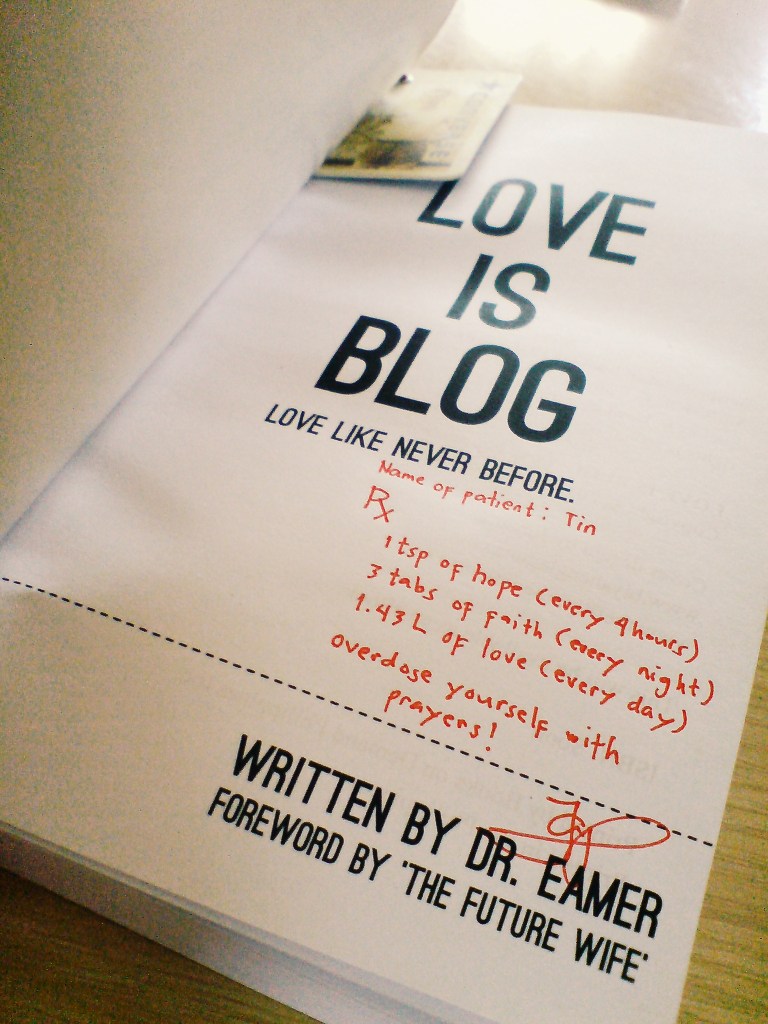 LOVE
IS
BLOG
LOVE LIKE NEVER BEFORE.
Name of patient: Tin
Rx
1 tsp of hope (every 4hours)
3 tabs of faith (every night)
1.43 L of love (every day)
overdose yourself with
prayers!
WRITTEN BY DR. EAMER
FOREWORD BY 'THE FUTURE WIFE'